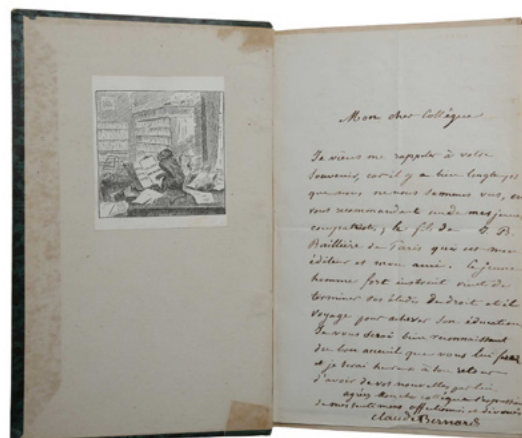 Mon cher Collègue
Je viens me rappeler à votre
souvenir, car il y a bien longtemps
que nous ne nous sommes vus, en
vous recommandant un de mes jeunes
compatriotes, le fils de J. B.
Baillière de Paris qui est mon
éditeur et mon ami. Ce jeune
homme fort instruit vient de
terminer ses études de droit et il
voyage pour achever son éducation
Je vous serai bien reconnaissant
du bon accueil que vous lui ferez
et je serai heureux à son retour
d'avoir de vos nouvelles par lui.
agréez mon cher collègue l'expression
de mes sentiments affectionnés et dévoués
Claude Bernard